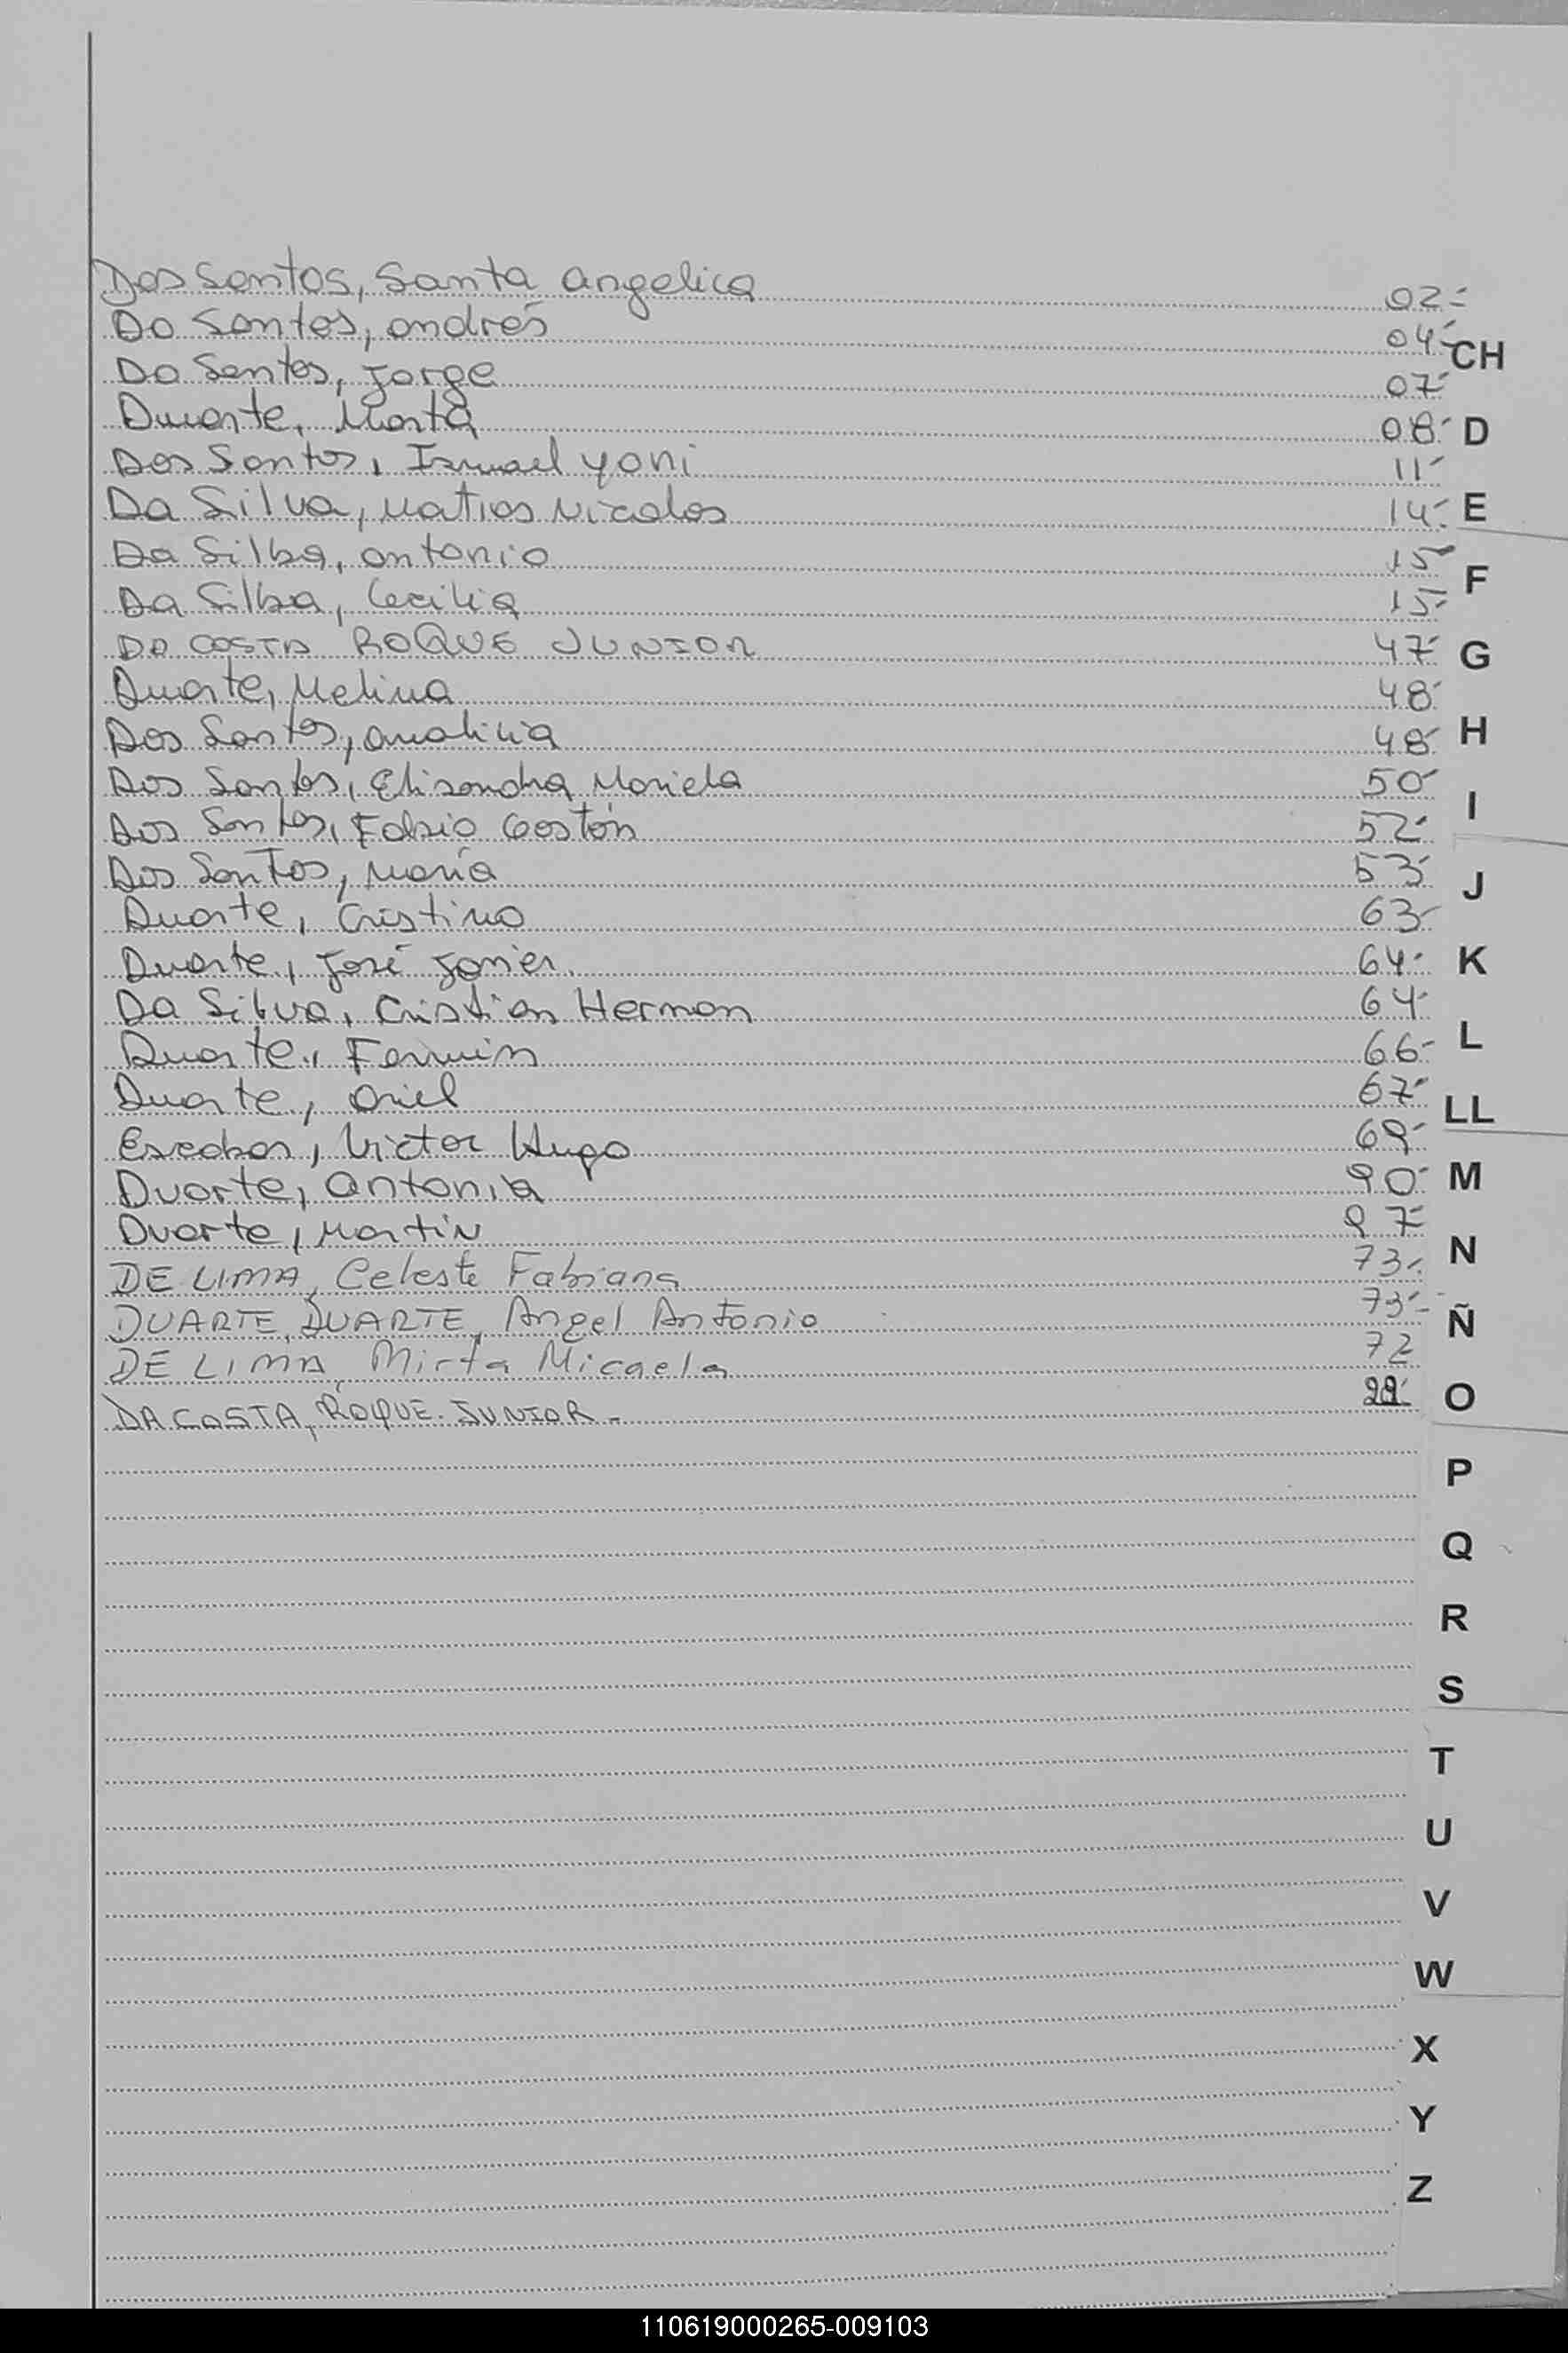 Dos Santos, Santa Angelica 02-
Do Santos, Andrés 04-
CH
Do Santos, Jorge 07-
Duarte, Marta 08- D
Dos Santos, Ismael Yoni 11-
Da Silva, Matias Nicolas 14- E
Da Silba, Antonio 15-
F
Da Silba, Cecilia 15-
DA COSTA ROQUE JUNIOR 47- G
Duarte, Melina 48-
Dos Santos, Analicia 48- H
Dos Santos, Elisandra Mariela 50-
I
Dos Santos, Fabio Gastón 52-
Dos Santos, María 53-
J
Duarte, Cristino 63-
Duarte, José Javier 64- K
Da Silva, Cristian Hernan 64-
Duarte, Fermin 66- L
Duarte, Ariel 67-
LL
Escobar, Victor Hugo 69-
Duarte, Antonia 90- M
Duarte, Martin 97-
DE LIMA, Celeste Fabiana 73- N
DUARTE DUARTE, Angel Antonio 73-
Ñ
DE LIMA, Mirta Micaela 72
DA COSTA, ROQUE JUNIOR.- O
P
Q
R
S
T
U
V
W
X
Y
Z
110619000265-009103